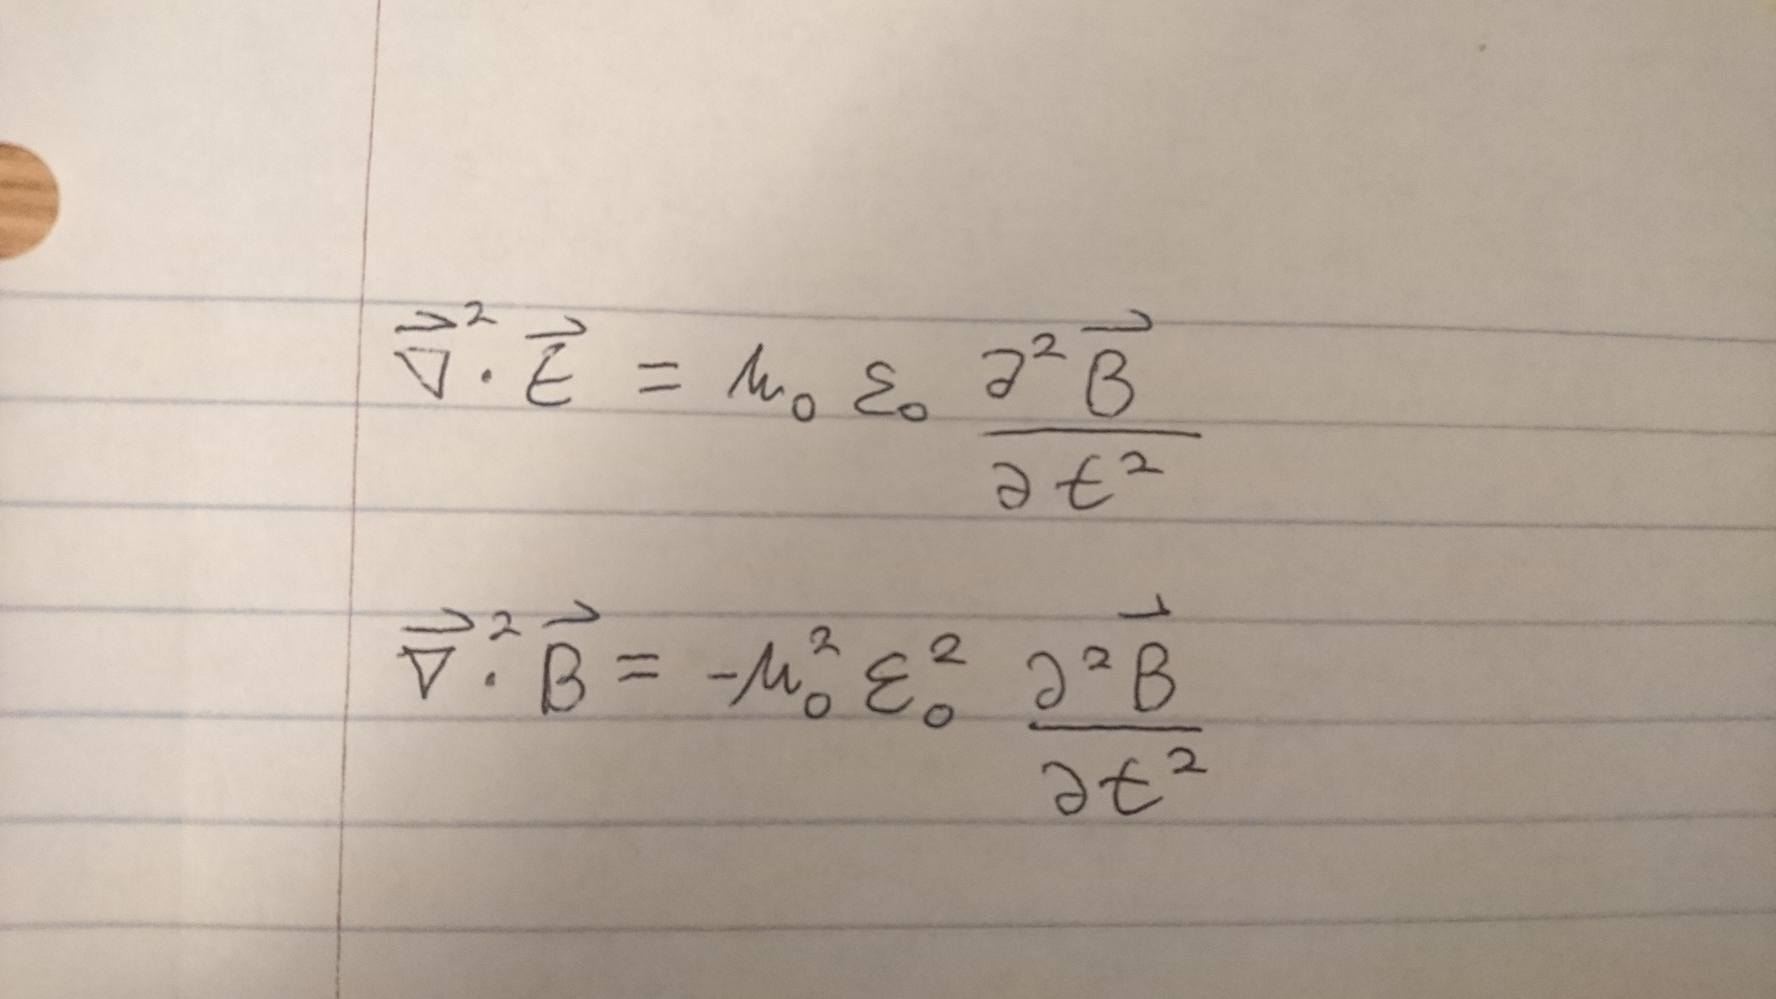 ∇⃗² · E⃗ = μ₀ ε₀ ∂²B⃗ / ∂t²
∇⃗ ·² B⃗ = -μ₀² ε₀² ∂²B⃗ / ∂t²